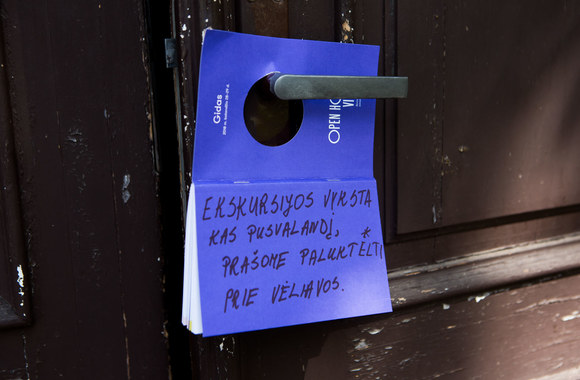 Gidas
OPEN HO
VI
EKSKURSIJOS VYKSTA
KAS PUSVALANDĮ,
PRAŠOME PALUKTĖLTI
PRIE VĖLIAVOS.